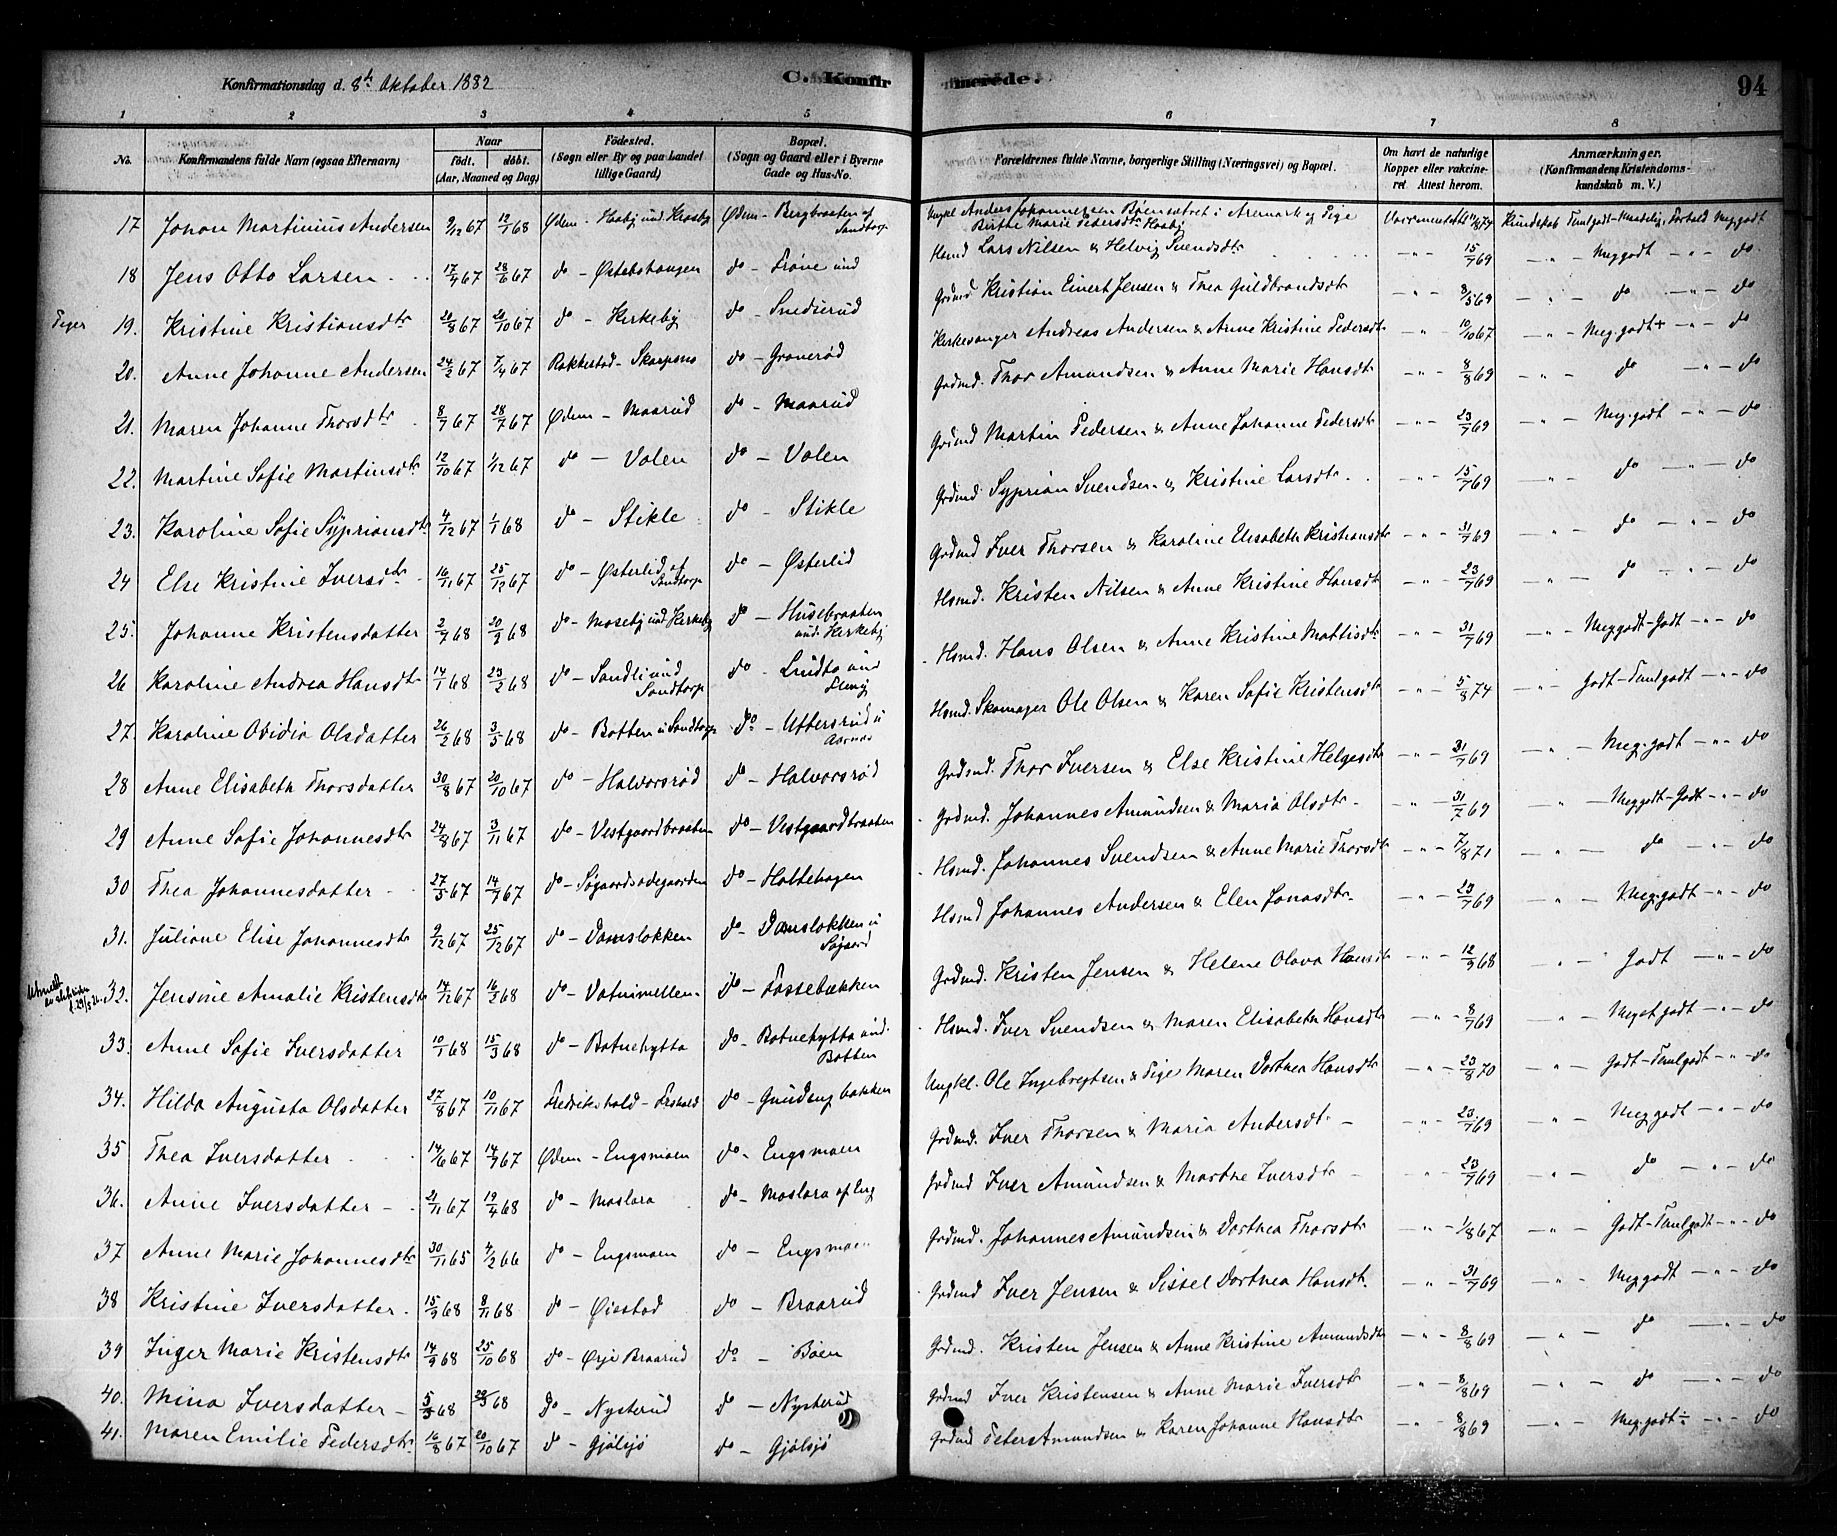 Konfirmationsdag d. 8de Oktober 1882
C. Konfirmerede.
94
1 2 3 4 5 6 7 8
No. Konfirmandens fulde Navn (ogsaa Efternavn) Naar født. døbt. (Aar, Maaned og Dag) Fødested. (Sogn eller By og paa Landet tillige Gaard) Bopæl. (Sogn og Gaard eller i Byerne Gade og Hus-No. Forældrenes fulde Navne, borgerlige Stilling (Næringsvei) og Bopæl. Om havt de naturlige Kopper eller vakcineret Attest herom. Anmærkninger. (Konfirmandens Kristendomskundskab m. V.)
17 Johan Martinius Andersen 9/12 67 12/1 68 Ødem - Ødem - Bergbraaten af Sandtorp Ungkl Anders Johannesen i Aremark og Pige Birthe Marie Pedersdtr Kundskab Temlgodt
18 Jens Otto Larsen 17/4 67 28/6 67 do - do - Hsmd Lars Nilsen & Helvig Svendsdtr 15/7 69 Meggodt - do
Piger 19. Kristine Kristiansdtr 20/8 67 20/10 67 do - Kirkeby do - Snedserud Grdmd Kristian Einert Jensen & Thea Guldbrandsdtr 8/5 69 do - do
20. Anne Johanne Andersen 24/2 67 7/4 67 Rakkestad - do - Granerød Kirkesanger Andreas Andersen & Anne Kristine Pedersdtr 10/10 67 Meg.godt + do
21. Maren Johanne Thorsdtr 8/7 67 28/7 67 Ødem - Maarud do - Maarud Grdmd. Thor Amundsen & Anne Marie Hansdtr 8/8 69 do - do
22. Martine Sofie Martinsdtr 12/10 67 1/12 67 do - Volen do - Volen Grdmd Martin Pedersen & Anne Johanne Pedersdtr 23/7 69 Meg.godt - do
23. Karoline Sofie Sypriansdtr 4/12 67 1/1 68 do - Stikle do - Stikle Grdmd Syprian Svendsen & Kristine Larsdtr. 15/7 69 do - do
24 Else Kristine Iversdtr 16/11 67 25/12 67 do - Østerlid af Sandtorp do - Østerlid Grdmd Iver Thorsen & Karoline Elisabeth Kristiansdtr 31/7 69 do - do
25. Johanne Kristensdatter 2/7 68 20/9 68 do - Moseby und Kirkeby do - Husebraaten und. Kirkeby Hsmd. Kristen Nilsen & Anne Kristine Hansdtr 23/7 69 do - do
26 Karoline Andrea Hansdtr 14/1 68 23/2 68 do - Sandli und Sandtorp do - Lundta und Hsmd. Hans Olsen & Anne Kristine Mattisdtr 31/7 69 Meggodt-Godt - do
27. Karoline Ovidia Olsdatter 26/2 68 3/5 68 do - Botten u Sandtorp do - Uttersrud u Hsmd. Skomager Ole Olsen & Karen Sofie Kristensdtr 5/8 74 Godt-Temlgodt - do
28 Anne Elisabeth Thorsdatter 30/8 67 20/10 67 do - Halvorsrød do - Halvorsrød Grdmd. Thor Iversen & Else Kristine Helgesdtr 31/7 69 Meg.godt - do
29 Anne Sofie Johannesdtr 24/8 67 3/11 67 do - Vestgaardbraaten do - Vestgaardbraaten Grdmd. Johannes Amundsen & Maria Olsdtr. 31/7 69 Meggodt-Godt - do
30 Thea Johannesdatter 27/5 67 14/7 67 do - Søgaardsødegaarden do - Holtehagen Hsmd. Johannes Svendsen & Anne Marie Thorsdtr 7/8 71 do - do
31. Juliane Elise Johannesdtr 9/12 67 25/12 67 do - Damsløkken do - Damsløkken u Søgaard Hsmd Johannes Andersen & Elen Jonasdtr. 23/7 69 Meg.godt - do
32. Jensine Amalie Kristensdtr 14/12 67 16/2 68 do - do - Fossebækken Grdmd. Kristen Jensen & Helene Olava Hansdtr 12/9 68 Godt - do
33. Anne Sofie Iversdatter 10/1 68 15/3 68 do - Botnehytta do - Botnehytta und. Botten Hsmd. Iver Svendsen & Maren Elisabeth Hansdtr 8/7 69 Meget godt - do
34. Hilda Augusta Olsdatter 27/8 67 10/11 67 Fredrikshald - do - Ungkl. Ole Ingebregtsen & Pige Maren Dorthea Hansdtr 23/8 70 Godt-Temlgodt - do
35 Thea Iversdatter 14/6 67 14/7 67 Ødem - Engsmoen do - Engsmoen Grdmd. Iver Thorsen & Maria Andersdtr. 23/7 69 Meg.godt - do
36. Anne Iversdatter 21/11 67 19/4 68 do - Moslara do - Moslara af Eng Grdmd Iver Amundsen & Marthe Iversdtr 23/7 69 do - do
37 Anne Marie Johannesdtr 30/11 65 4/2 66 do - Engsmoen do - Engsmoen Grdmd. Johannes Amundsen & Dorthea Thorsdtr 1/8 67 Godt-Temlgodt - do
38 Kristine Iversdatter 15/9 68 8/11 68 do - Øiestad do - Braarud Grdmd Iver Jensen & Sissel Dorthea Hansdtr. 31/7 69 Meg.godt - do
39 Inger Marie Kristensdtr 14/9 68 25/10 68 do - Ørje Braarud do - Bøen Grdmd. Kristen Jensen & Anne Kristine Amundsdtr 8/8 69 do - do
40. Mina Iversdatter 68 68 do - Nysterud do - Nysterud Grdmd Iver Kristensen & Anne Marie Iversdtr 8/8 69 do - do
41. Maren Emilie Pedersdtr 16/8 67 20/10 67 do - Gjølsjø do - Gjølsjø Grdmd Peter Amundsen & Karen Johanne Hansdtr 8/8 69 Meg.godt ÷ do